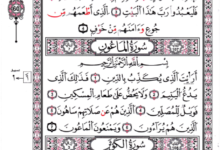 فَلْيَعْبُدُوا۟ رَبَّ هَٰذَا ٱلْبَيْتِ ٱلَّذِىٓ أَطْعَمَهُم مِّن
جُوعٍ وَءَامَنَهُم مِّنْ خَوْفٍ
سُورَةُ الْمَاعُونِ
بِسْمِ ٱللَّهِ ٱلرَّحْمَٰنِ ٱلرَّحِيمِ
أَرَءَيْتَ ٱلَّذِى يُكَذِّبُ بِٱلدِّينِ فَذَٰلِكَ ٱلَّذِى
يَدُعُّ ٱلْيَتِيمَ وَلَا يَحُضُّ عَلَىٰ طَعَامِ ٱلْمِسْكِينِ
فَوَيْلٌ لِّلْمُصَلِّينَ ٱلَّذِينَ هُمْ عَن صَلَاتِهِمْ سَاهُونَ
ٱلَّذِينَ هُمْ يُرَآءُونَ وَيَمْنَعُونَ ٱلْمَاعُونَ
سُورَةُ الْكَوْثَرِ